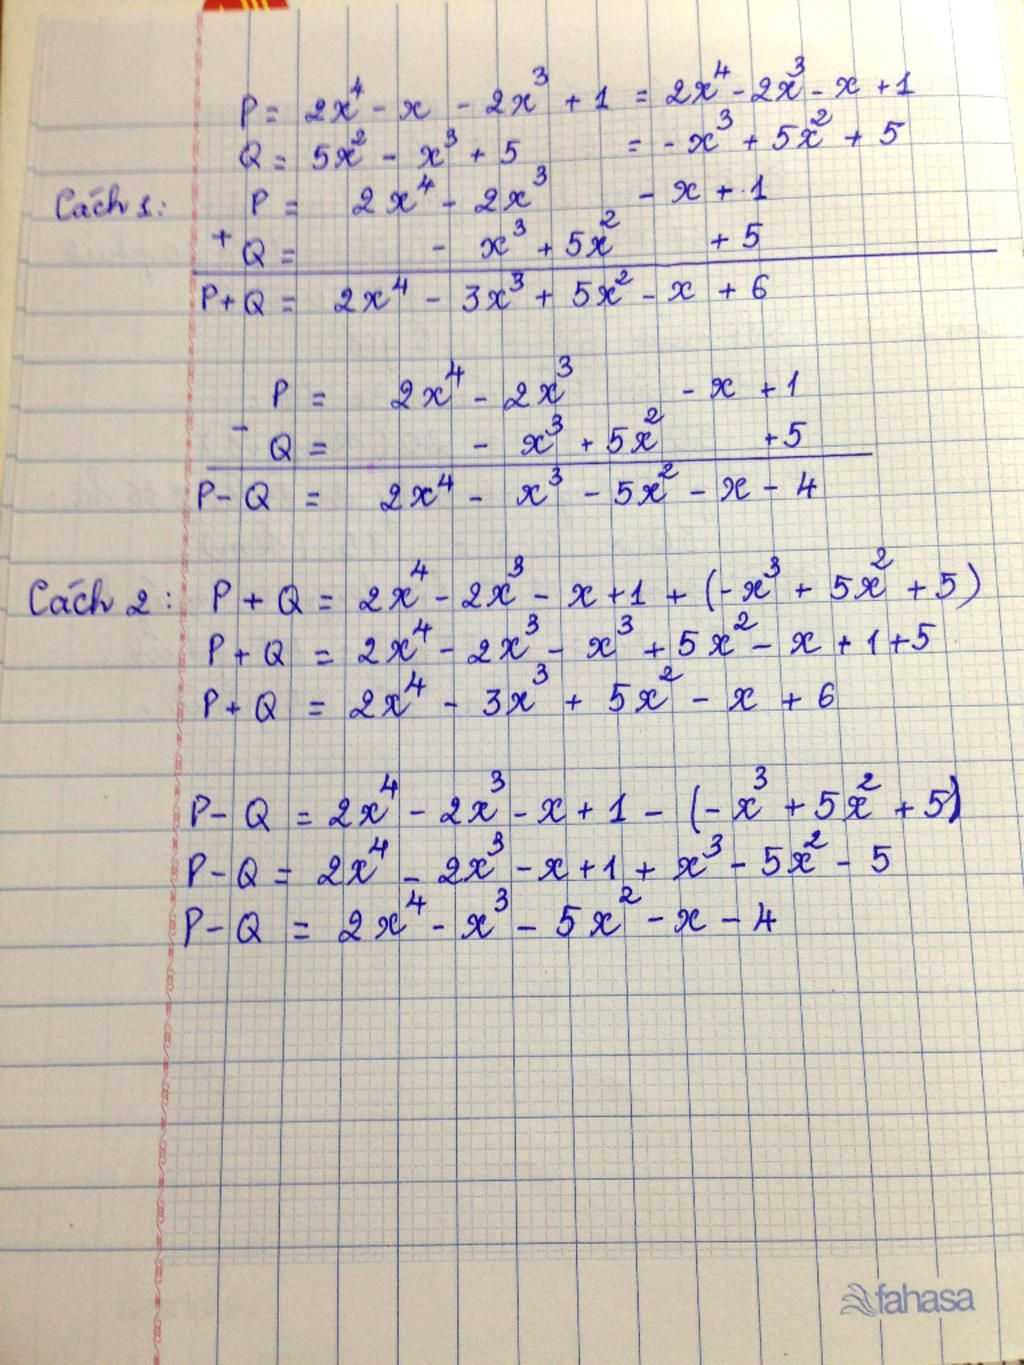 P = 2x⁴ - x - 2x³ + 1 = 2x⁴ - 2x³ - x + 1
Q = 5x² - x³ + 5 = - x³ + 5x² + 5
Cách 1: P = 2x⁴ - 2x³ - x + 1
+ Q = - x³ + 5x² + 5
P + Q = 2x⁴ - 3x³ + 5x² - x + 6
P = 2x⁴ - 2x³ - x + 1
- Q = - x³ + 5x² + 5
P - Q = 2x⁴ - x³ - 5x² - x - 4
Cách 2: P + Q = 2x⁴ - 2x³ - x + 1 + (-x³ + 5x² + 5)
P + Q = 2x⁴ - 2x³ - x³ + 5x² - x + 1 + 5
P + Q = 2x⁴ - 3x³ + 5x² - x + 6
P - Q = 2x⁴ - 2x³ - x + 1 - (-x³ + 5x² + 5)
P - Q = 2x⁴ - 2x³ - x + 1 + x³ - 5x² - 5
P - Q = 2x⁴ - x³ - 5x² - x - 4
fahasa